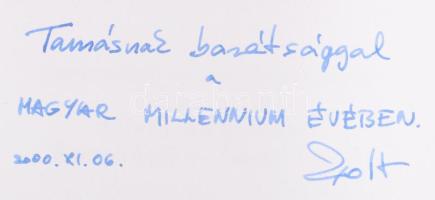 Tamásnak barátsággal
a
MAGYAR MILLENNIUM ÉVÉBEN.
2000. XI. 06.
Zsolt